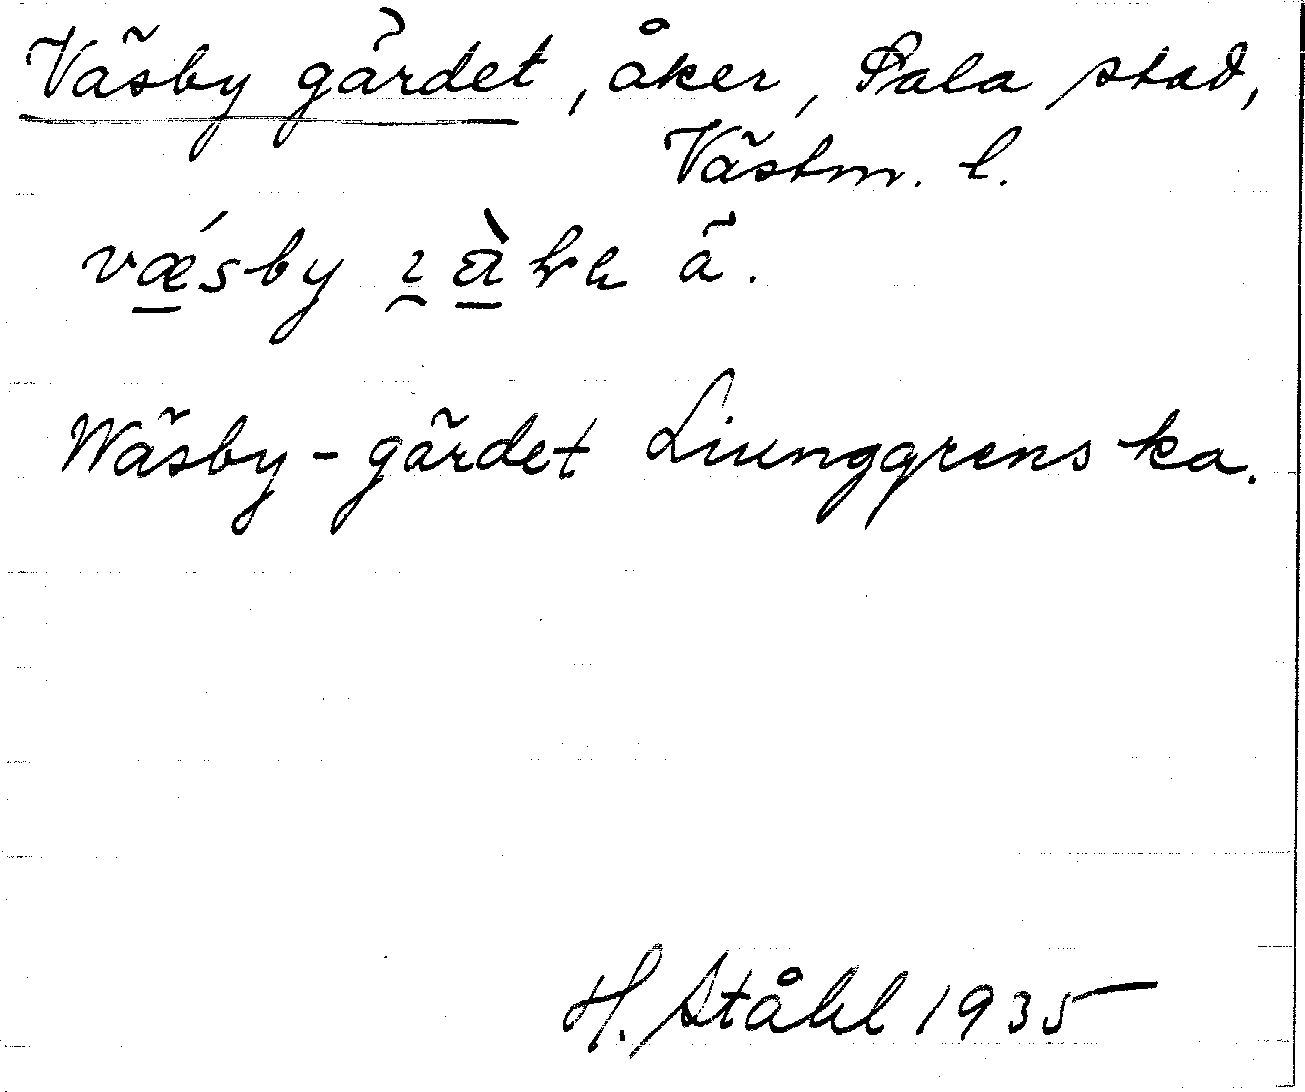 Väsby gärdet, åker, Sala stad,
Västm. l.
väsby ä.
Wäsby-gärdet Liunggrens ka.
H. Ståhl 1935